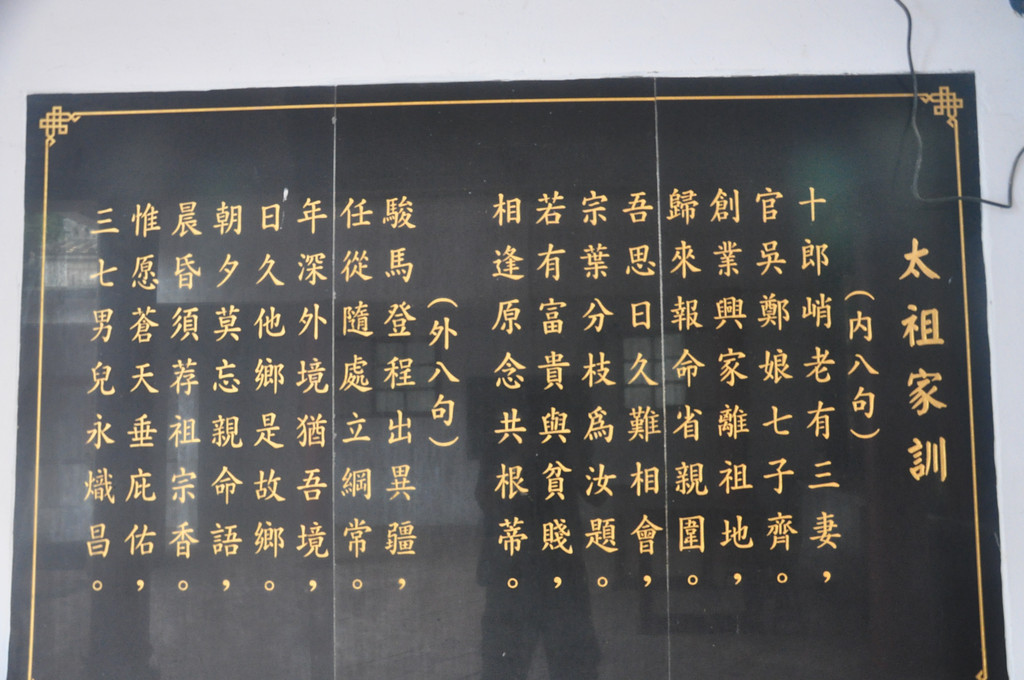 太祖家訓
（内八句）
十郎峭老有三妻，
官吳鄭娘七子齊。
創業興家離祖地，
歸來報命省親圍。
吾思日久難相會，
宗葉分枝為汝題。
若有富貴與貧賤，
相逢原念共根蒂。
（外八句）
駿馬登程出異疆，
任從隨處立綱常。
年深外境猶吾境，
日久他鄉是故鄉。
朝夕莫忘親命語，
晨昏須荐祖宗香。
惟愿蒼天垂庇佑，
三七男兒永熾昌。